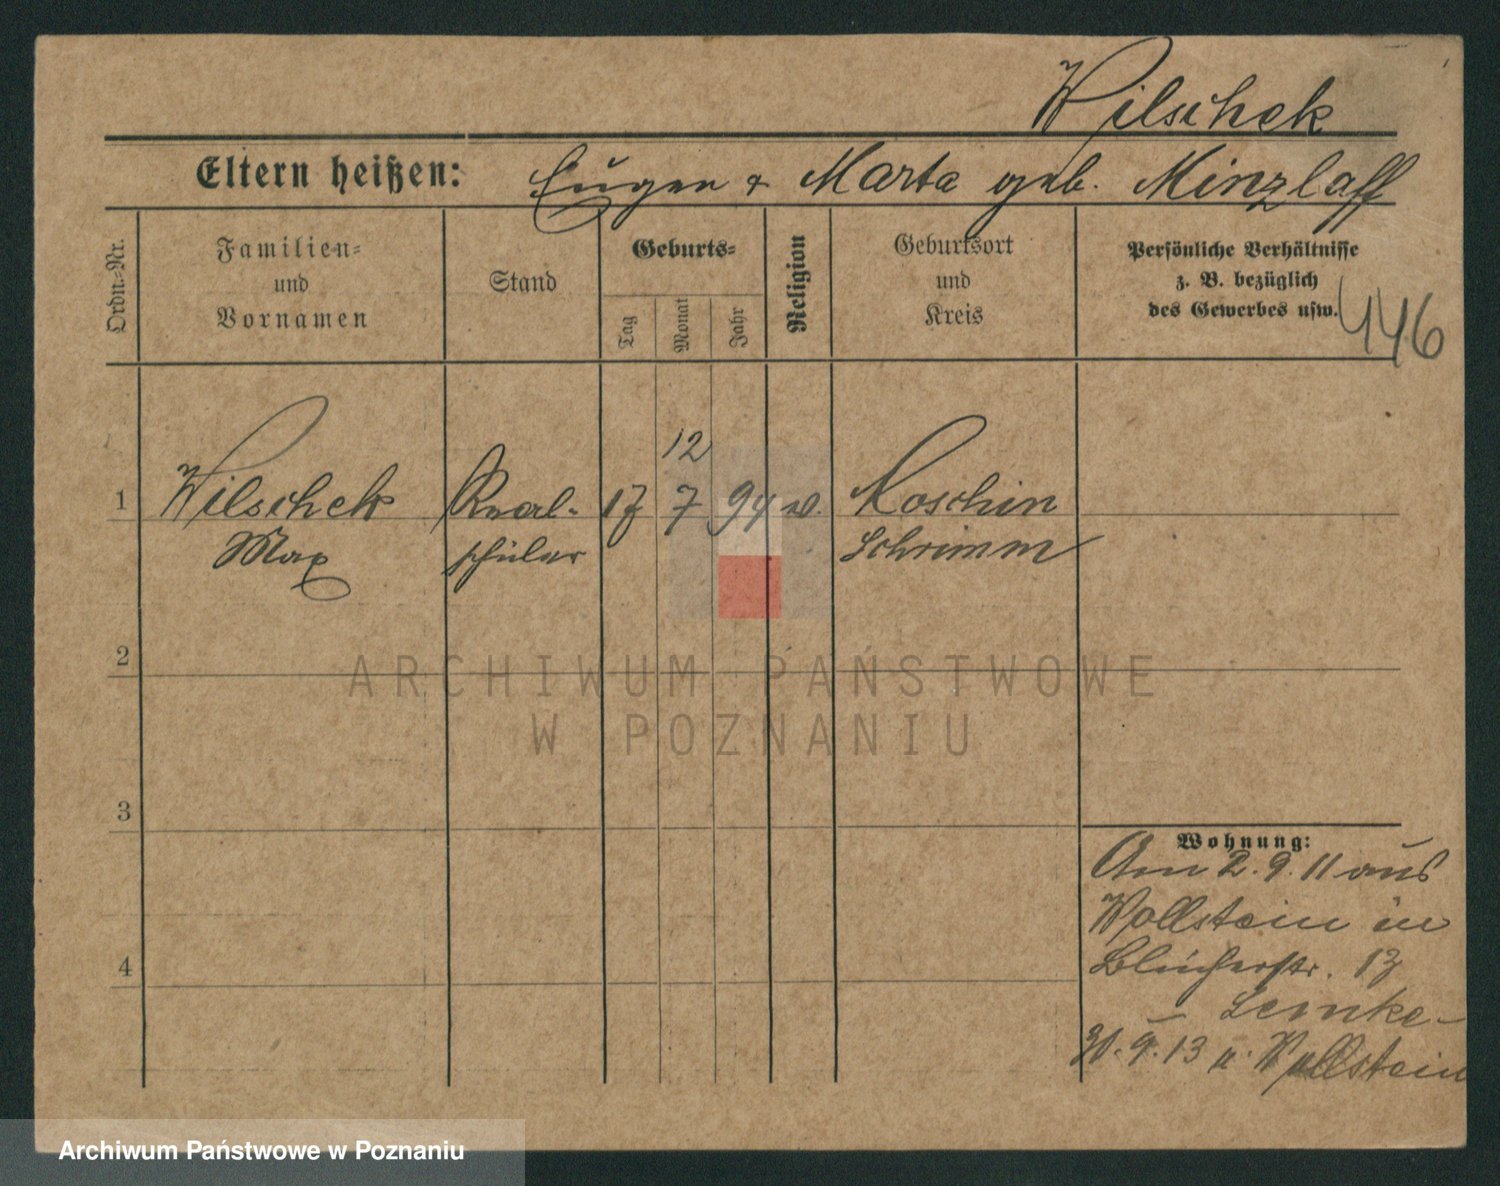 Wilschek
Eltern heißen: Eugen & Marta geb. Minzlaff
Ordn.-Nr.
Familien- und Vornamen
Stand
Geburts-
Tag
Monat
Jahr
Religion
Geburtsort und Kreis
Persönliche Verhältnisse
z. B. bezüglich
des Gewerbes usw.
446
12
1 Wilschek Real- 17 7 94 Moschin
Max schüler Schrimm
2
3
4
Wohnung:
Am 2.9.11 aus
Wollstein in
Blücherstr. 13
Lemke
9.13 n. Wollstein
ARCHIWUM PAŃSTWOWE
W POZNANIU
Archiwum Państwowe w Poznaniu